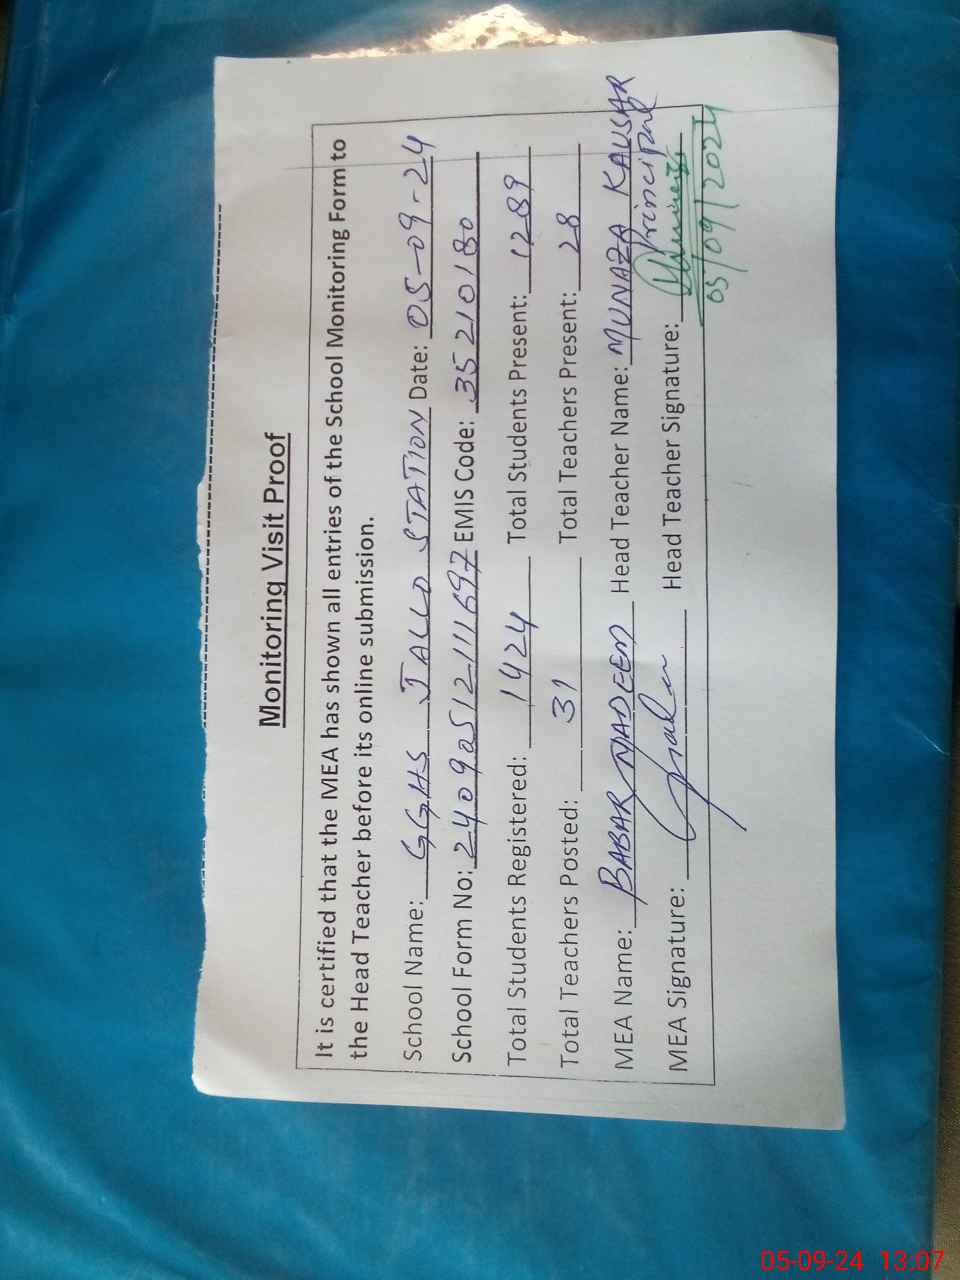 Monitoring Visit Proof
It is certified that the MEA has shown all entries of the School Monitoring Form to
the Head Teacher before its online submission.
School Name: GGHS JALLO STATION Date: 05-09-24
School Form No: 240905121111697 EMIS Code: 35210180
Total Students Registered: 1424 Total Students Present: 1289
Total Teachers Posted: 31 Total Teachers Present: 28
MEA Name: BABAR NADEEM Head Teacher Name: MUNAZA KAUSAR
Principal
MEA Signature: Head Teacher Signature:
05/09/2024
05-09-24 13:07